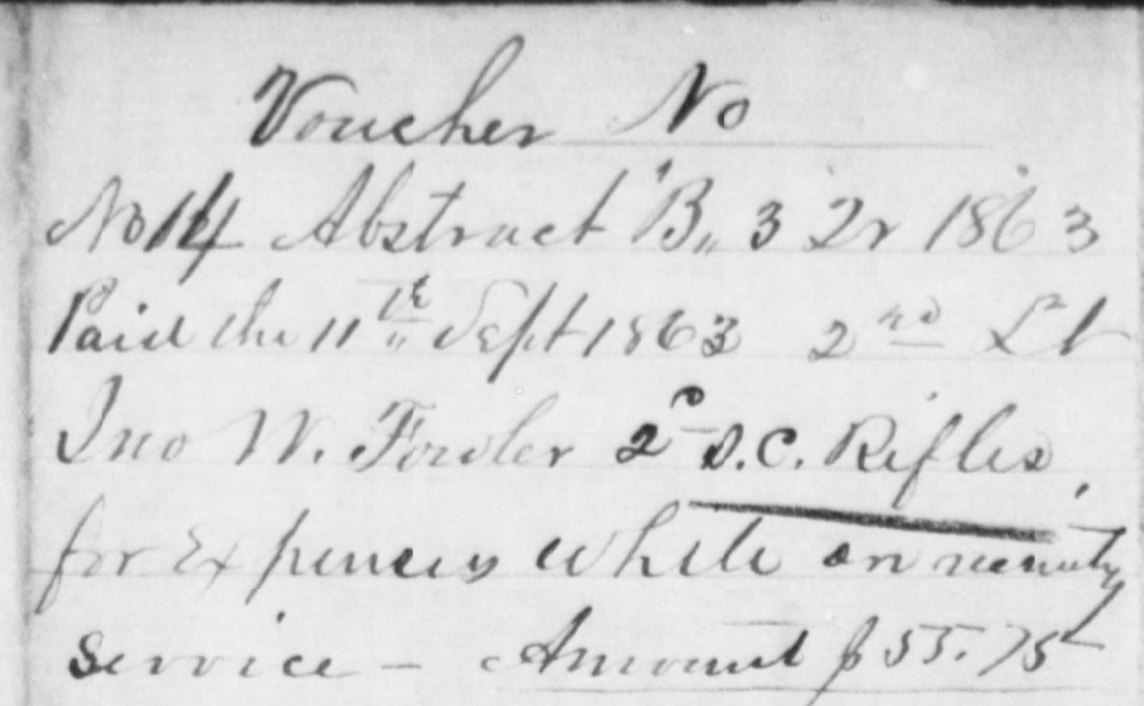 Voucher No
No 14 Abstract "B" 3 Qr 1863
Paid the 11th Sept 1863 2nd Lt
Jno W. Fowler 2d S.C. Rifles,
for Expences while on recruitg
service - Amount $55.75